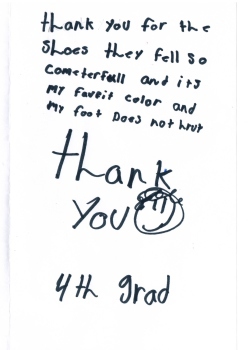 thank you for the
shoes they fell so
Cometerfall and its
my faveit color and
my foot Does not hrut
thank
you
4th grad